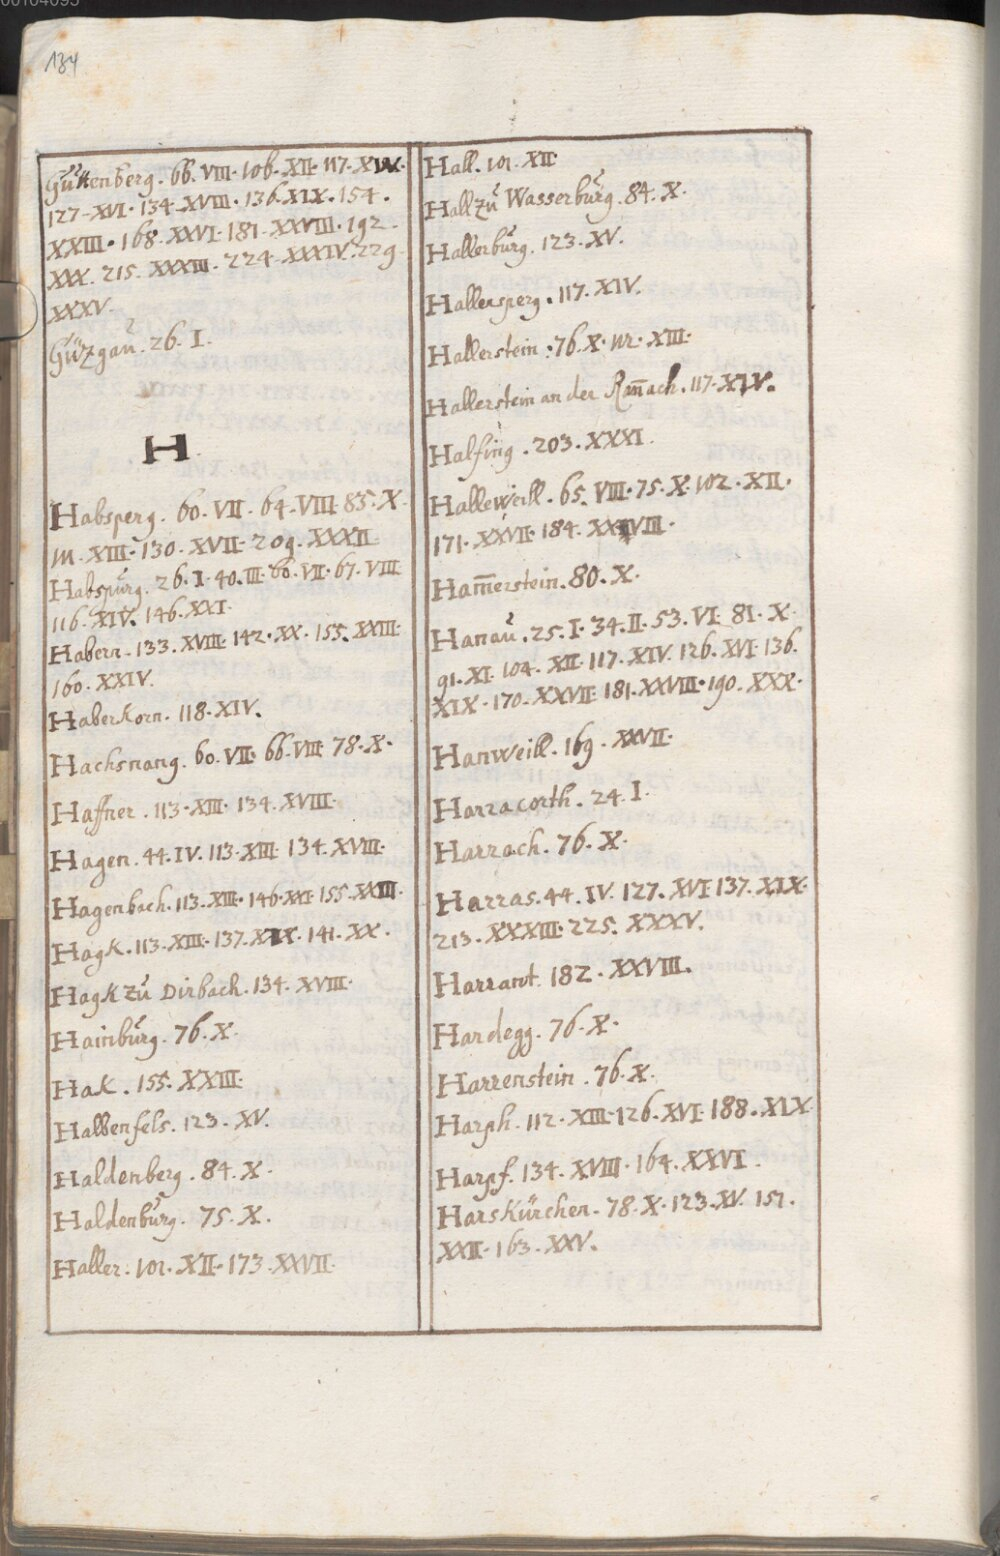 134
Güttenberg. 66. VIII. 106. XII. 117. XIV.
127. XVI. 134. XVIII. 136. XIX. 154.
XXIII. 168. XXVI. 181. XXVIII. 192.
XXX. 215. XXXIII. 224. XXXIV. 229.
XXXV.
Güzgaü. 26. I.
H.
Habsperg. 60. VII. 64. VIII. 85. X.
111. XIII. 130. XVII. 209. XXXII.
Habspürg. 26. I. 40. III. 60. VII. 67. VIII
116. XIV. 146. XXI.
Habern. 133. XVIII. 142. XX. 155. XXIII.
160. XXIV.
Haberkorn. 118. XIV.
Hachsnang. 60. VII. 66. VIII. 78. X.
Haffner. 113. XIII. 134. XVIII.
Hagen. 44. IV. 113. XIII. 134. XVIII.
Hagenbach. 113. XIII. 146. XXI. 155. XXIII.
Hagk. 113. XIII. 137. XIX. 141. XX.
Hagk zü Dirbach. 134. XVIII.
Hainbürg. 76. X.
Hak. 155. XXIII.
Halbenfels. 123. XV.
Haldenberg. 84. X.
Haldenbürg. 75. X.
Haller. 101. XII. 173. XXVII.
Hall. 101. XII
Hall zü Wasserbürg. 84. X.
Hallerbürg. 123. XV.
Hallersperg. 117. XIV.
Hallerstein. 76. X. 112. XIII.
Hallerstein an der Ram̄ach. 117. XIV.
Halfing. 203. XXXI.
Halleweill. 65. VIII. 75. X. 102. XII.
171. XXVII. 184. XXVIII.
Ham̄erstein. 80. X.
Hanaü. 25. I. 34. II. 53. VI. 81. X.
91. XI. 104. XII. 117. XIV. 126. XVI. 136.
XIX. 170. XXVII. 181. XXVIII. 190. XXX.
Hanweill. 169. XXVII.
Harracorth. 24. I.
Harrach. 76. X.
Harras. 44. IV. 127. XVI. 137. XIX.
213. XXXIII. 225. XXXV.
Harrant. 182. XXVIII.
Hardegg. 76. X.
Harrenstein. 76. X.
Harph. 112. XIII. 126. XVI. 188. XIX.
Harpf. 134. XVIII. 164. XXVI.
Harskürchen. 78. X. 123. XV. 151.
XXII. 163. XXV.